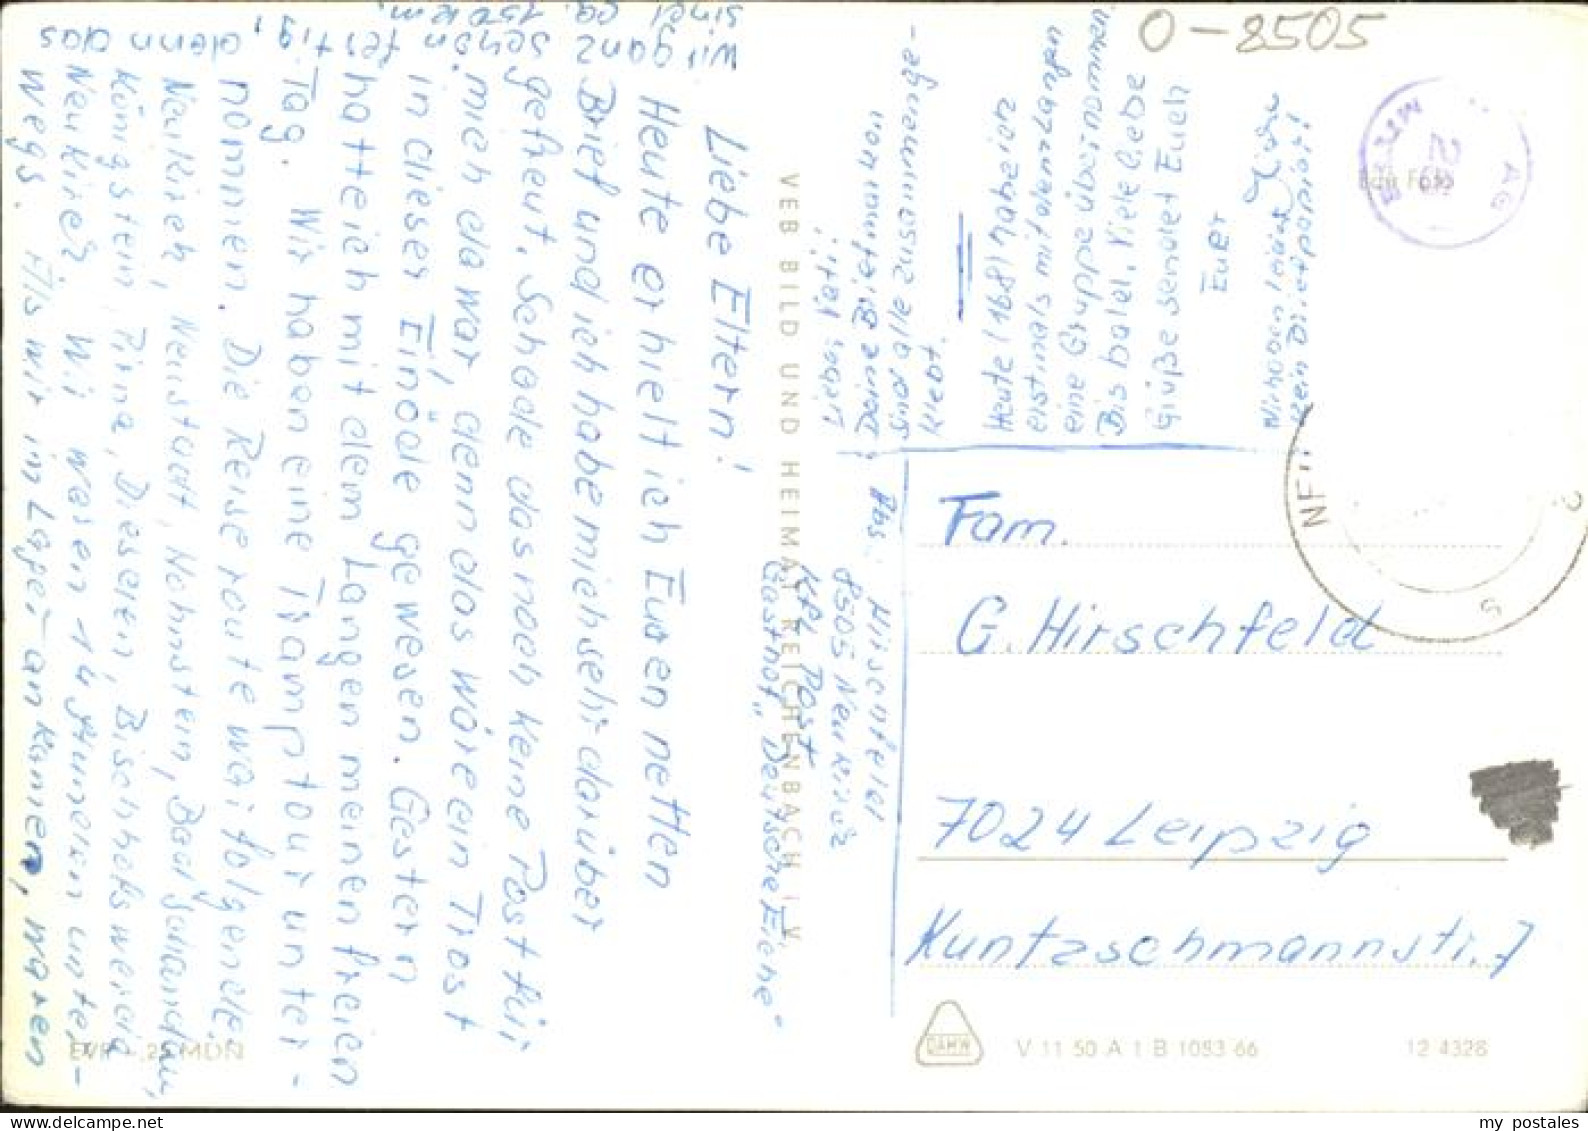 Liebe Eltern!
Heute erhielt ich Euren netten
Brief und ich habe mich sehr darüber
gefreut. Schade das noch keine Post für
mich da war, denn das wäre ein Trost
in dieser Einöde gewesen. Gestern
hatte ich mit dem Langen meinen freien
Tag. Wir haben eine Tramptour unter-
nommen. Die Reiseroute war folgende:
Neukirch, Neustadt, Hohnstein, Bad Schandau,
Königstein, Pirna, Dresden, Bischofswerda
Neukirch. Wir waren 14 Stunden unter-
wegs. Als wir im Lager ankamen, waren
wir ganz schön fertig, denn das
sind ca. 150 km.
Lieber Vati!
Deine Briefmarken
sind alle zusammenge-
klebt.
Heute (1.68) habe ich
erstmals mit dem Langen
eine Gruppe übernommen.
Bis bald. Viele liebe
Grüße sendet Euch
Euer
Wir haben leider
kein Briefpapier!
Abs.: Hirschfeld
8505 Neukirch
KfL Post
Gasthof „Deutsche Eiche"
VEB BILD UND HEIMAT REICHENBACH I. V.
O-8505
Fam.
G. Hirschfeld
7024 Leipzig
Kuntzschmannstr. 7
EVP ,25 MDN
DAHW
V 11 50 A 1 B 1053 66
12 4328
my postales